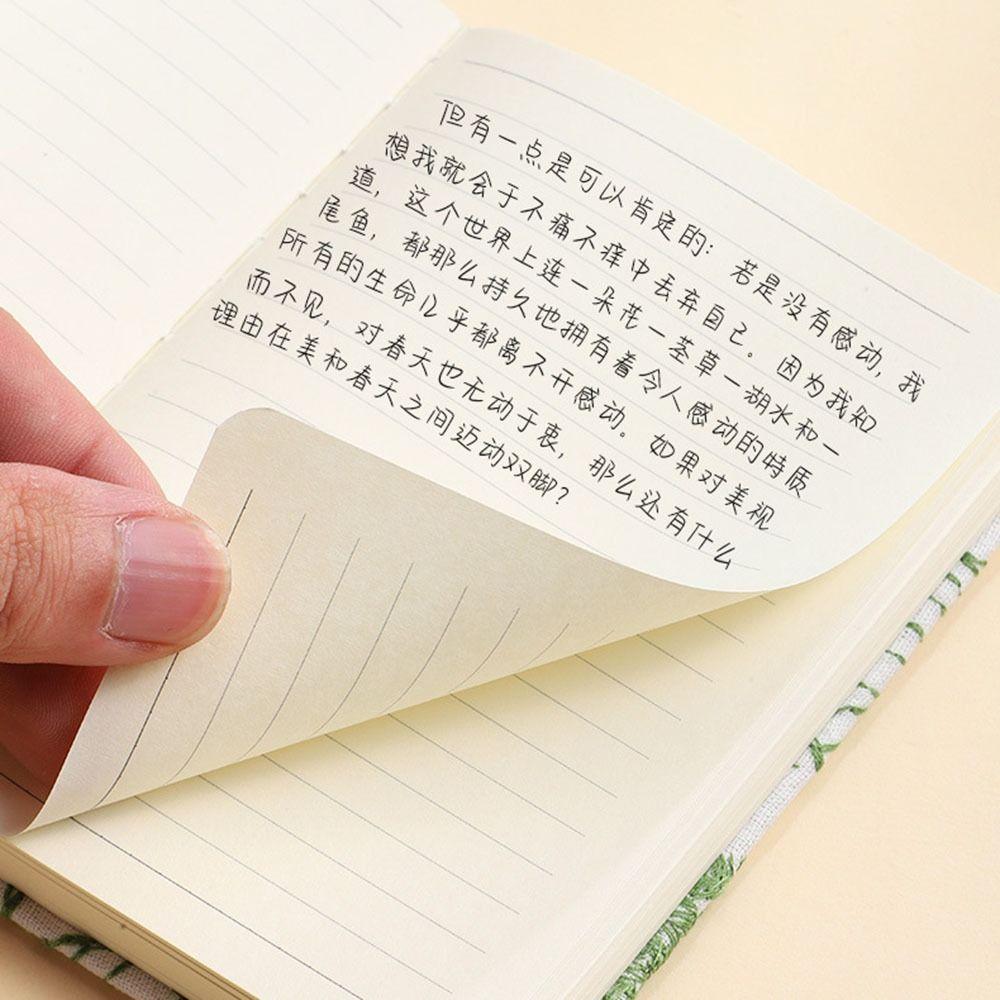 但有一点是可以肯定的：若是没有感动，我
想我就会于不痛不痒中去弃自己。因为我知
道，这个世界上连一朵花一茎草一湖水和一
尾鱼，都那么持久地拥有着令人感动的特质
所有的生命几乎都离不开感动。如果对美视
而不见，对春天也无动于衷，那么还有什么
理由在美和春天之间迈动双脚？